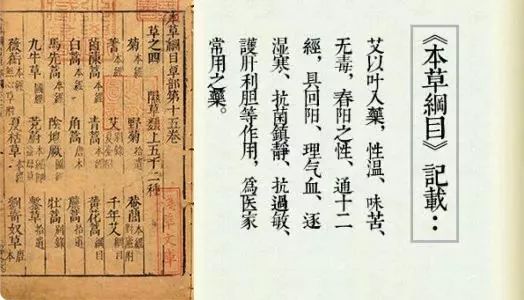 《本草綱目》記載：
艾以叶入藥，性温、味苦、
无毒，春阳之性、通十二
經，具回阳、理气血、逐
湿寒、抗菌鎮静、抗過敏、
護肝利胆等作用，為医家
常用之藥。
本草綱目草部第十五卷
草之四 隰草類上五十三種
菊 本經 野菊 拾遺 菴䕡 本經
蓍 本經 艾 別錄 千年艾 綱目
茵陳蒿 本經 青蒿 本經 黃花蒿 綱目
白蒿 本經 角蒿 唐本 蒿 拾遺
馬先蒿 本經 陰地厥 圖經 牡蒿 別錄
九牛草 圖經 茺蔚 本經 鏨菜 拾遺
薇銜 本經 夏枯草 本經 劉寄奴草 唐本
淺草文庫